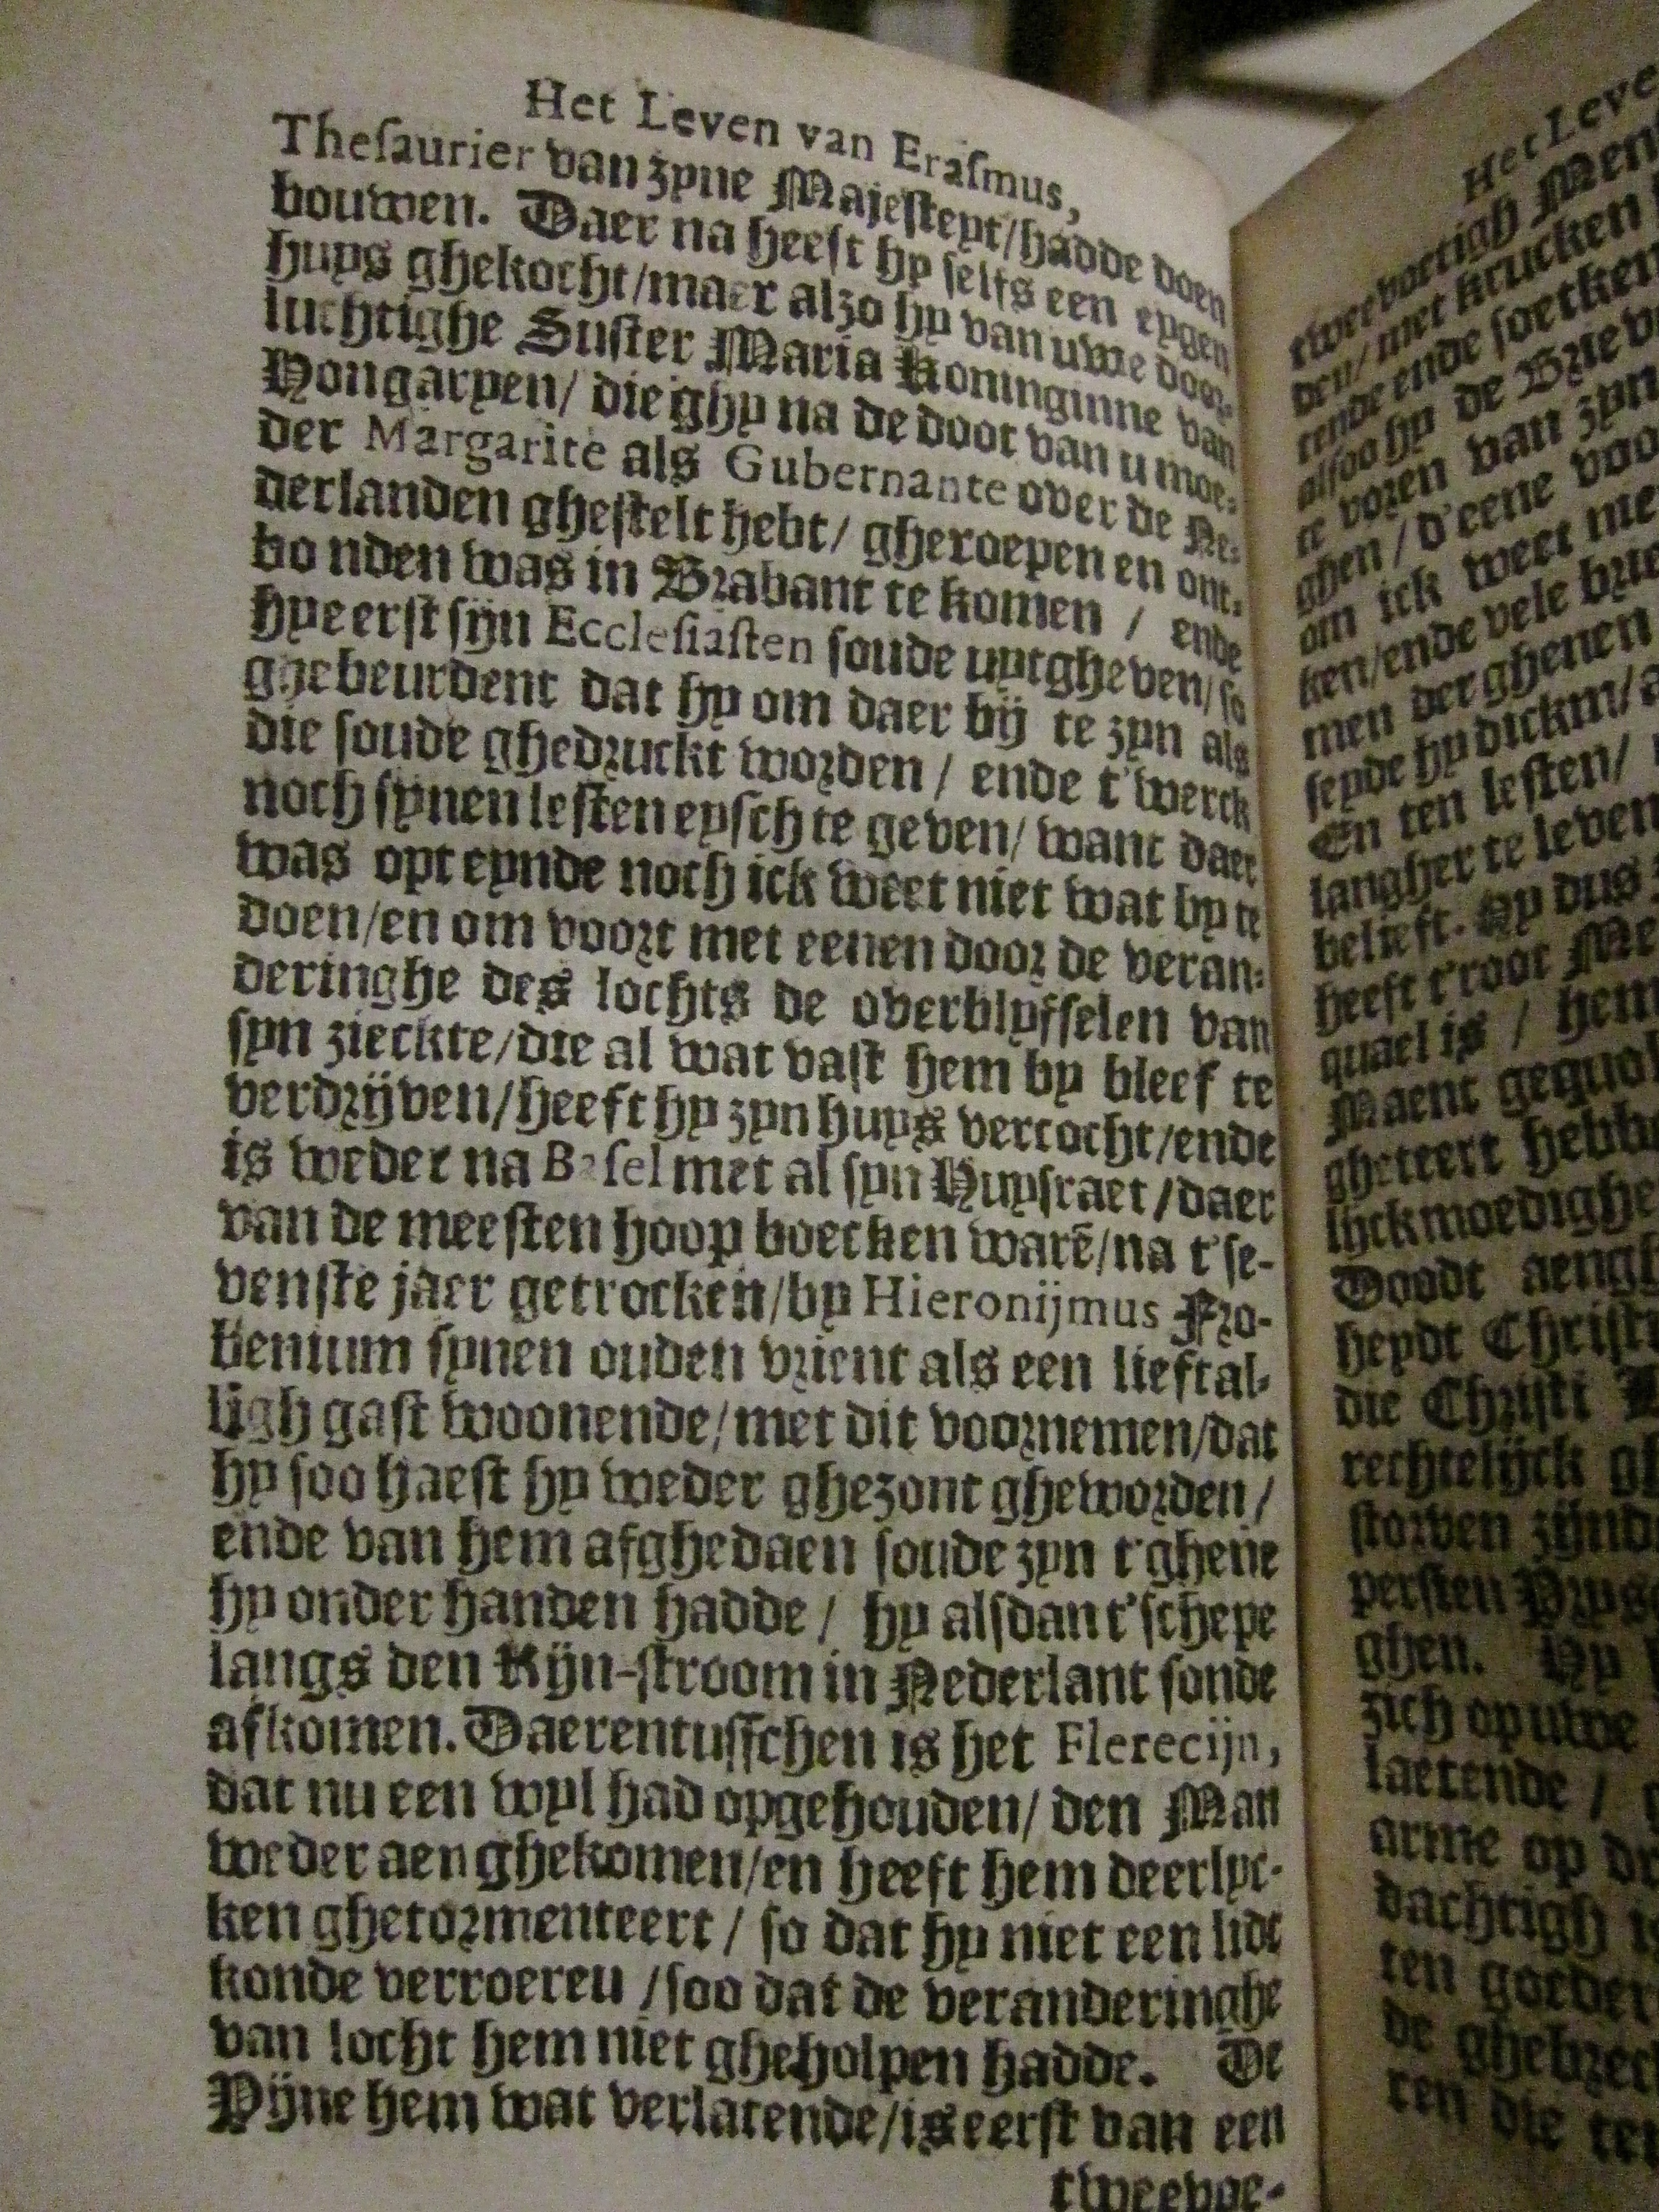 Het Leven van Eraſmus,
Theſaurier van zyne Majeſteyt/hadde doen
bouwen. Daer na heeft hy ſelfs een eygen
huys ghekocht/maer alzo hy van uwe door-
luchtighe Suſter Maria Koninginne van
Hongaryen/ die ghy na de doot van u moe-
der Margarite als Gubernante over de Ne-
derlanden gheſtelt hebt/ gheroepen en ont-
bo nden was in Brabant te komen / ende
hye erſt ſijn Eccleſiaſten ſoude uytgheven/ſo
ghebeurdent dat hy om daer bij te zyn als
die ſoude ghedruckt worden / ende t'werck
noch ſynen leſten eyſch te geven/ want daer
was opt eynde noch ick weet niet wat by te
doen/en om voort met eenen door de veran-
deringhe des lochts de overblyffelen van
ſyn zieckte/die al wat vaſt hem by bleef te
verdrijven/heeft hy zyn huys vercocht/ende
is weder na Baſel met al ſyn Huyſraet/daer
van de meeſten hoop boecken warē/na t'ſe-
venſte jaer getrocken/by Hieronijmus Fro-
benium ſynen ouden vrient als een lieftal-
ligh gaſt woonende/met dit voornemen/dat
hy ſoo haeſt hy weder ghezont gheworden/
ende van hem afghedaen ſoude zyn t'ghene
hy onder handen hadde / hy alſdan t'ſchepe
langs den Rijn-ſtroom in Nederlant ſonde
afkomen. Daerentuſſchen is het Flerecijn,
dat nu een wyl had opgehouden/ den Man
weder aen ghekomen/en heeft hem deerlyc-
ken ghetormenteert / ſo dat hy niet een lidt
konde verroereu /ſoo dat de veranderinghe
van locht hem niet gheholpen hadde. De
Pijne hem wat verlatende/is eerſt van een
tweevoe-
Het Leve
tweevoetigh Men
den/ met krucken
tende ende ſoetken
alſoo hy de Briev
te voren van zyn
ghen / d'eene voo
om ick weet nie
ken/ende vele brie
men der ghenen
ſeyde hy dickm/a
En ten leſten/
langher te leven
belieft. Hy dus
heeft t'root Me
quael is / hem
Maent gequol
gheteert hebbe
lijckmoedighe
Doodt aengſ
heydt Chriſti
die Chriſti
rechtelijck gh
ſtorven zijnd
perſten Prys
ghen. Hy
zich op uwe
laetende /
arme op
dachtigh
ten goeder
de ghebrec
ren die ten